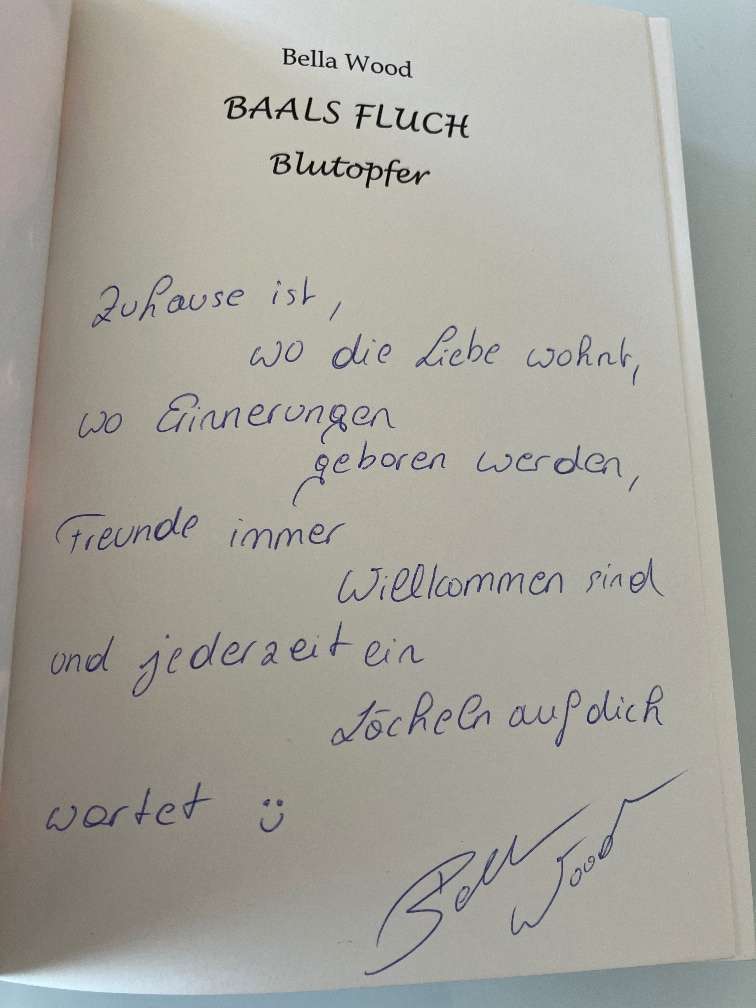 Bella Wood
BAALS FLUCH
Blutopfer
Zuhause ist,
wo die Liebe wohnt,
wo Erinnerungen
geboren werden,
Freunde immer
Willkommen sind
und jederzeit ein
Lächeln auf dich
wartet ü
Bella Wood